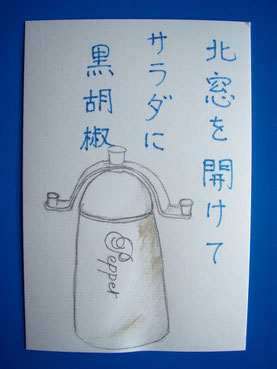 北窓を開けて
サラダに
黒胡椒
Pepper